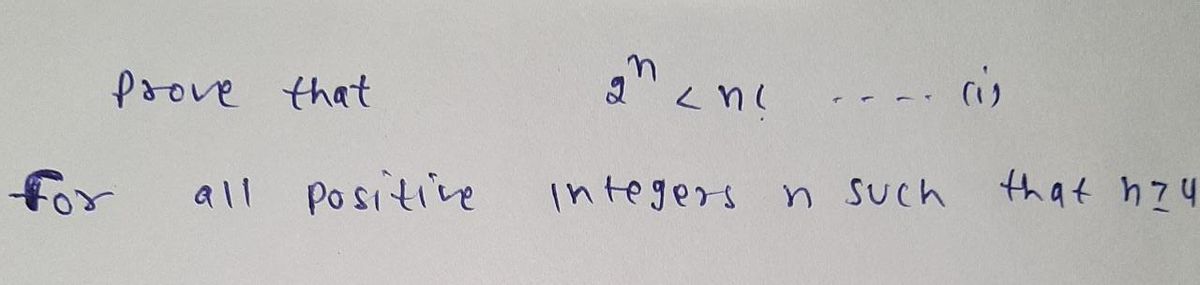 Prove that 2^n < n! ----. (i)
For all positive integers n such that n ≥ 4